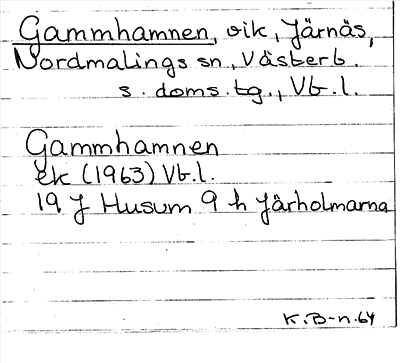 Gammhamnen, vik, Järnäs,
Nordmalings sn, Västerb.
s. doms.tg., Vb.l.
Gammhamnen
Ek (1963) Vb.l.
19 J Husum 9 h Järholmarna
K.B-n.64